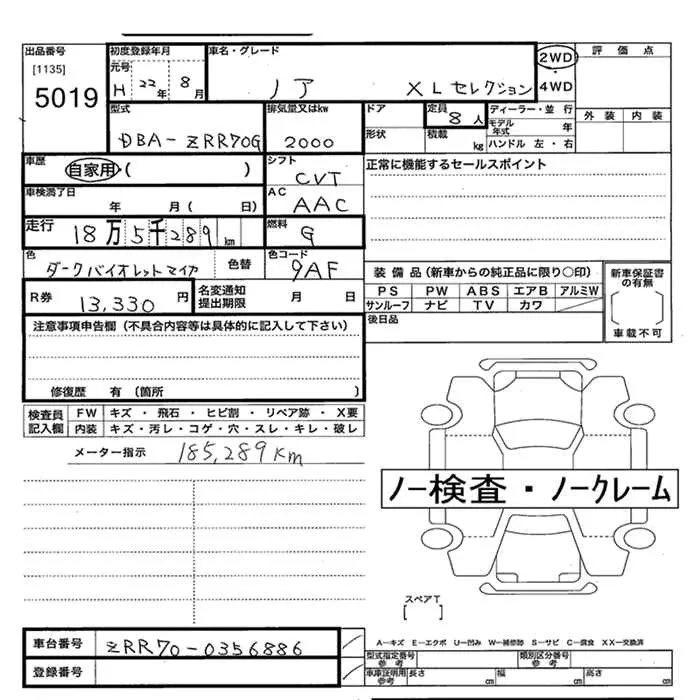 出品番号 初度登録年月 車名・グレード 2WD 評価点
[1135] 元号 4WD
5019 H 22年 8月 ノア X Lセレクション
型式 排気量又はkw ドア 定員 8人 ディーラー・並行 外装 内装
モデル年式 年
DBA-ZRR70G 2000 形状 積載 kg ハンドル 左・右
車歴 自家用( ) シフト CVT 正常に機能するセールスポイント
車検満了日 年 月( 日) AC AAC
走行 18万5千289km 燃料 G
色 ダークバイオレットマイカ 色替 色コード 9AF 装備品(新車からの純正品に限り○印) 新車保証書の有無
R券 13,330円 名変通知提出期限 月 日 PS PW ABS エアB アルミW
サンルーフ ナビ TV カワ
注意事項申告欄(不具合内容等は具体的に記入して下さい) 後日品 車載不可
修復歴 有(箇所 )
検査員記入欄 FW キズ・飛石・ヒビ割・リペア跡・X要
内装 キズ・汚レ・コゲ・穴・スレ・キレ・破レ
メーター指示 185,289Km
ノー検査・ノークレーム
スペアT
[ ]
車台番号 ZRR70-0356886 A−キズ E−エクボ U−凹み W−補修跡 S−サビ C−腐食 XX−交換済
型式指定番号 参考 類別区分番号 参考
登録番号 車庫証明用 参考 長さ cm 幅 cm 高さ cm